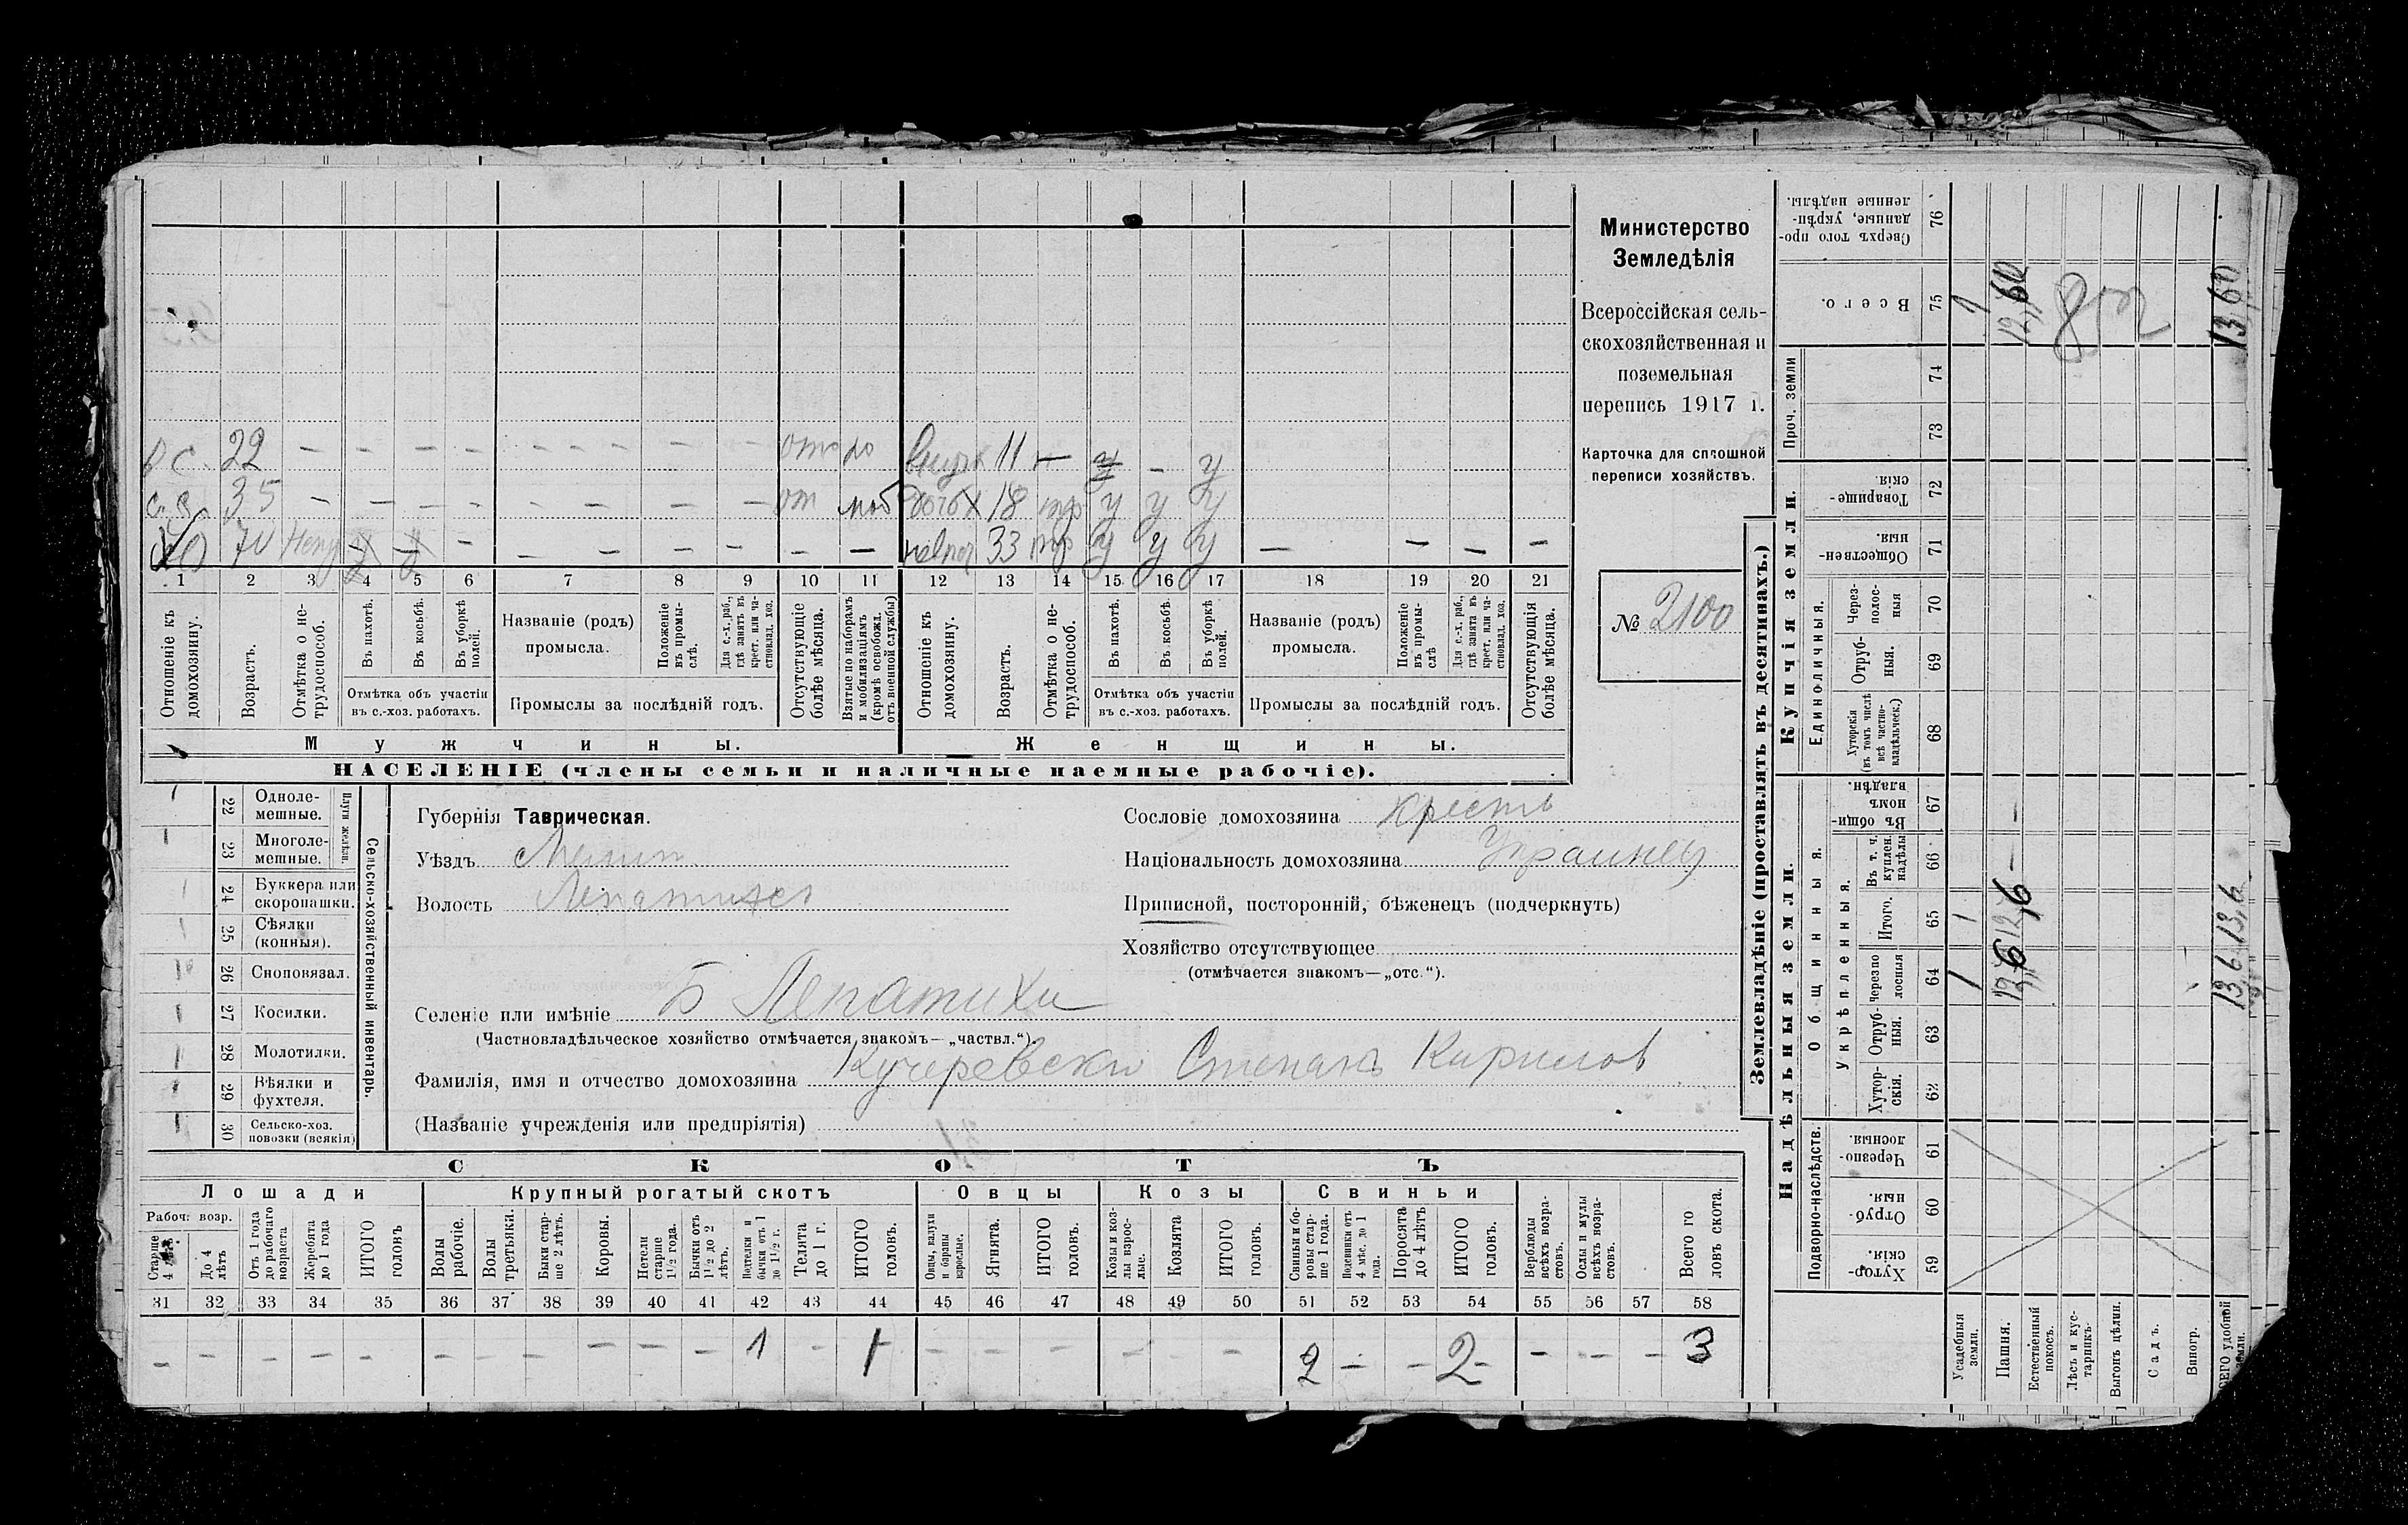 Министерство
Земледѣлія
Всероссійская сель-
скохозяйственная и
поземельная
перепись 1917 г.
Карточка для сплошной
переписи хозяйствъ.
№ 2100
22 — — — — — — — — 11 — у — у
35 — — — — — — — от моб 18 у у у
70 — — — — — — — 33 у у у — — — —
1 2 3 4 5 6 7 8 9 10 11 12 13 14 15 16 17 18 19 20 21
Отношеніе къ домохозяину.
Возрастъ.
Отмѣтка о не-трудоспособ.
Въ пахотѣ.
Въ косьбѣ.
Въ уборкѣ полей.
Отмѣтка объ участіи въ с.-хоз. работахъ.
Названіе (родъ) промысла.
Положеніе въ промы-слѣ.
Для с.-х. раб., гдѣ занятъ въ крест. или ча-стновлад. хоз.
Промыслы за послѣдній годъ.
Отсутствующіе болѣе мѣсяца.
Взятые по наборамъ и мобилизаціямъ (кромѣ освобожд. отъ военной службы)
Отношеніе къ домохозяину.
Возрастъ.
Отмѣтка о не-трудоспособ.
Въ пахотѣ.
Въ косьбѣ.
Въ уборкѣ полей.
Отмѣтка объ участіи въ с.-хоз. работахъ.
Названіе (родъ) промысла.
Положеніе въ промы-слѣ
Для с.-х. раб., гдѣ занята въ крест. или ча-стновлад. хоз.
Промыслы за послѣдній годъ.
Отсутствующія болѣе мѣсяца.
Мужчины. Женщины.
НАСЕЛЕНІЕ (члены семьи и наличные наемные рабочіе).
Сельско-хозяйственный инвентарь.
Плуги желѣзн.
22 Одноле-мешные.
23 Многоле-мешные.
24 Буккера или скоропашки.
25 Сѣялки (конныя).
26 Сноповязал.
27 Косилки.
28 Молотилки.
29 Вѣялки и фухтеля.
30 Сельско-хоз. повозки (всякія)
Губернія Таврическая.
Уѣздъ Мелит
Волость Лепатиха
Селеніе или имѣніе Б Лепатиха
(Частновладѣльческое хозяйство отмѣчается знакомъ—„частвл.“).
Фамилія, имя и отчество домохозяина Кучеревски Степанъ Кирилов
(Названіе учрежденія или предпріятія)
Сословіе домохозяина крестъ
Національность домохозяина Украинец
Приписной, посторонній, бѣженецъ (подчеркнуть)
Хозяйство отсутствующее
(отмѣчается знакомъ—„отс.“).
СКОТЪ
Лошади Крупный рогатый скотъ Овцы Козы Свиньи
Рабоч. возр.
Старше 4 лѣтъ
До 4 лѣтъ
Отъ 1 года до рабочаго возраста
Жеребята до 1 года
ИТОГО головъ
Волы рабочіе.
Волы третьяки.
Быки стар-ше 2 лѣтъ.
Коровы.
Нетели старше 1½ года.
Бычки отъ 1½ до 2 лѣтъ.
Подтелки и бычки отъ 1 до 1½ г.
Телята до 1 г.
ИТОГО головъ.
Овцы, валухи и бараны взрослые.
Ягнята.
ИТОГО головъ.
Козы и коз-лы взрос-лые.
Козлята
ИТОГО головъ.
Свиньи и бо-ровы стар-ше 1 года.
Подсвинки отъ 4 мѣс. до 1 года.
Поросята до 4 лѣтъ
ИТОГО головъ.
Верблюды всѣхъ возра-стовъ.
Ослы и мулы всѣхъ возра-стовъ.
Всего го ловъ скота.
31 32 33 34 35 36 37 38 39 40 41 42 43 44 45 46 47 48 49 50 51 52 53 54 55 56 57 58
— — — — — — — — — — — 1 — 1 — — — — — — 2 — — 2 — — — 3
Землевладѣніе (проставлять въ десятинахъ.)
Надѣльныя земли. Купчія земли. Проч. земли
Подворно-наслѣдств.
Общинныя.
Укрѣпленныя.
Единоличныя.
Хутор-скія. 59
Отруб-ныя. 60
Черезпо-лосныя. 61
Хутор-скія. 62
Отруб-ныя. 63
Черезпо лосныя 64
Итого. 65
Въ т. ч. куплен. надѣлы 66
Въ общи-номъ владѣн. 67
Хуторскія (въ томъ числѣ всѣ частно-владѣльческ.) 68
Отруб-ныя. 69
Через-полос-ныя 70
Обществен-ныя. 71
Товарище-скія. 72
73
74
Всего. 75
Сверхъ того про-данные, укрѣп-ленные надѣлы. 76
Усадебныя земли. 1 1 1
Пашня. 12,6 12,6 — — 12,60
Естественный покосъ.
Лѣсъ и кус-тарникъ.
Выгонъ цѣлин.
Садъ.
Виногр.
ВСЕГО удобной земли. 13,6 13,6 13,60